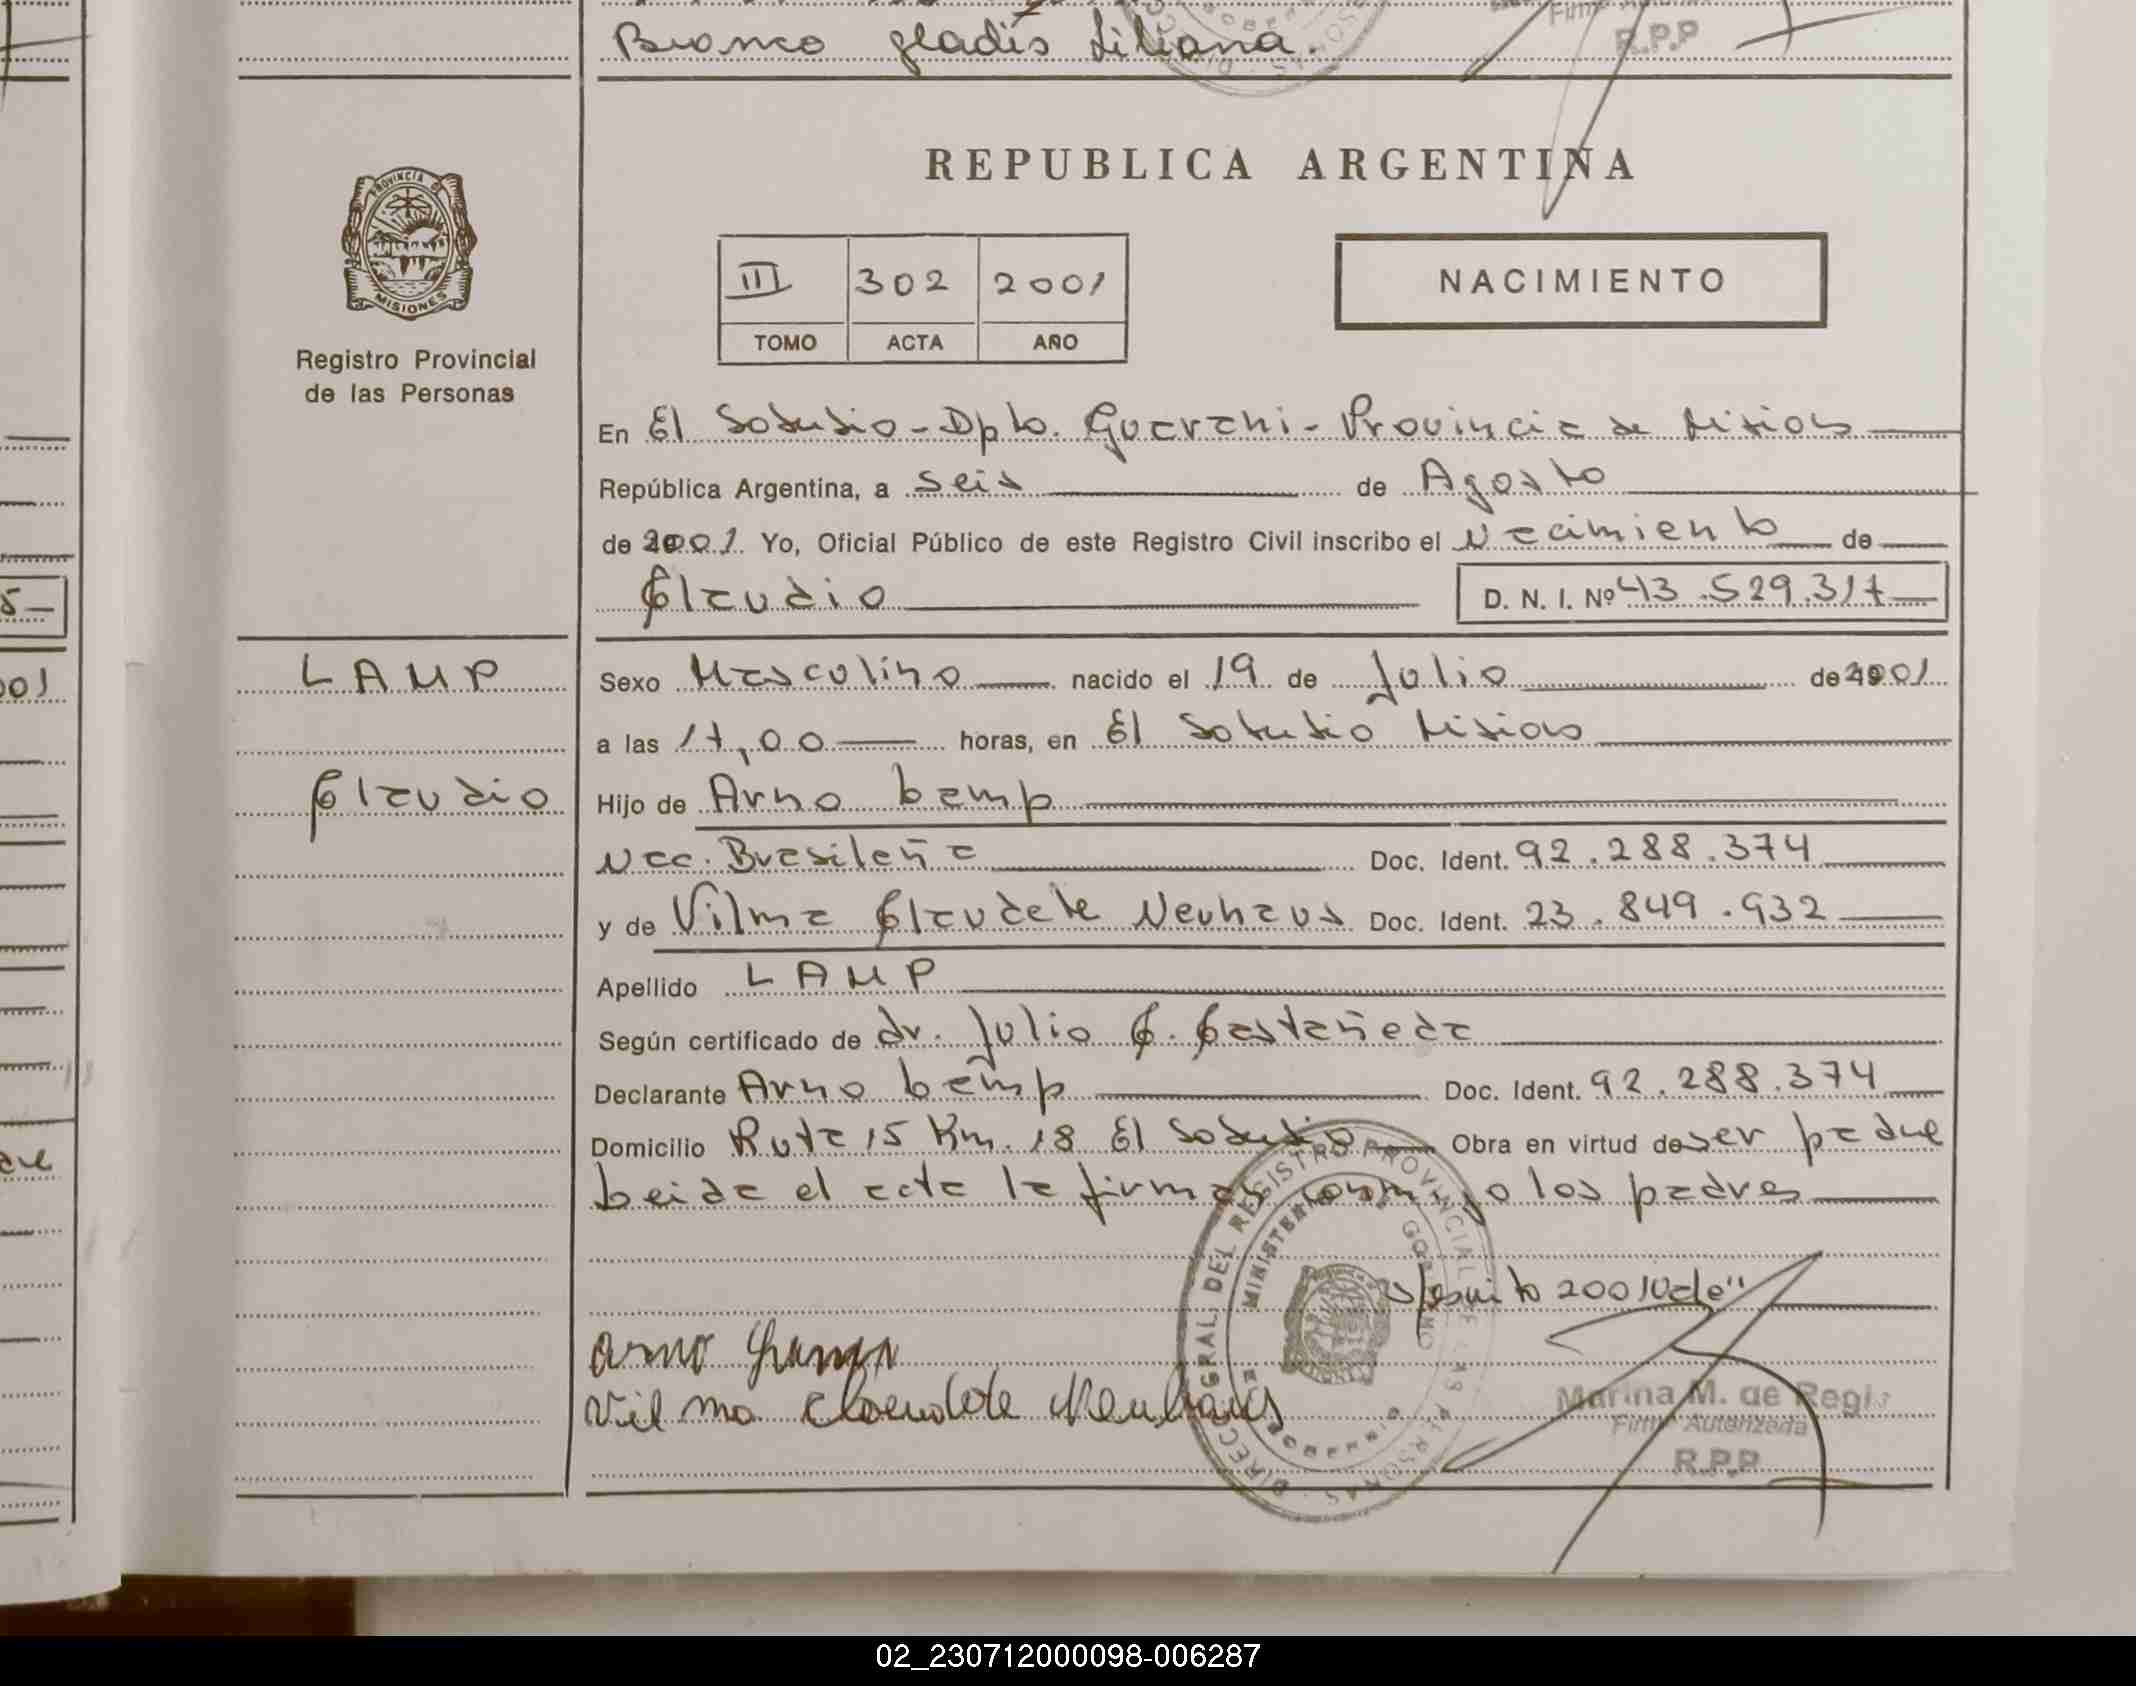 Bronco gladis Liliana.
PROVINCIA DE
MISIONES
Registro Provincial
de las Personas
REPUBLICA ARGENTINA
III 302 2001
TOMO ACTA AÑO
NACIMIENTO
En El Soberbio - Dpto. Guarani - Provincia de Misiones
República Argentina, a seis de Agosto
de 2001. Yo, Oficial Público de este Registro Civil inscribo el Nacimiento de
Claudio D. N. I. Nº 43.529.317
LAMP
Claudio
Sexo Masculino nacido el 19 de Julio de 2001
a las 17,00 horas, en El Soberbio Misiones
Hijo de Arno Lamp
Nac. Brasileña Doc. Ident. 92.288.374
y de Vilma Claudete Neuhaus Doc. Ident. 23.849.932
Apellido LAMP
Según certificado de dr. Julio C. Castañeda
Declarante Arno Lamp Doc. Ident. 92.288.374
Domicilio Ruta 15 Km. 18 El Soberbio Obra en virtud de ser padre
Leida el acta la firman conmigo los padres
2001 Vale"
Arno Lamp
Vilma Claudete Neuhaus
DIRECC GRAL. DEL REGISTRO PROVINCIAL DE LAS PERSONAS
MINISTERIO DE GOBIERNO
Marina M. de Regis
Firma Autorizada
R.P.P
02_230712000098-006287